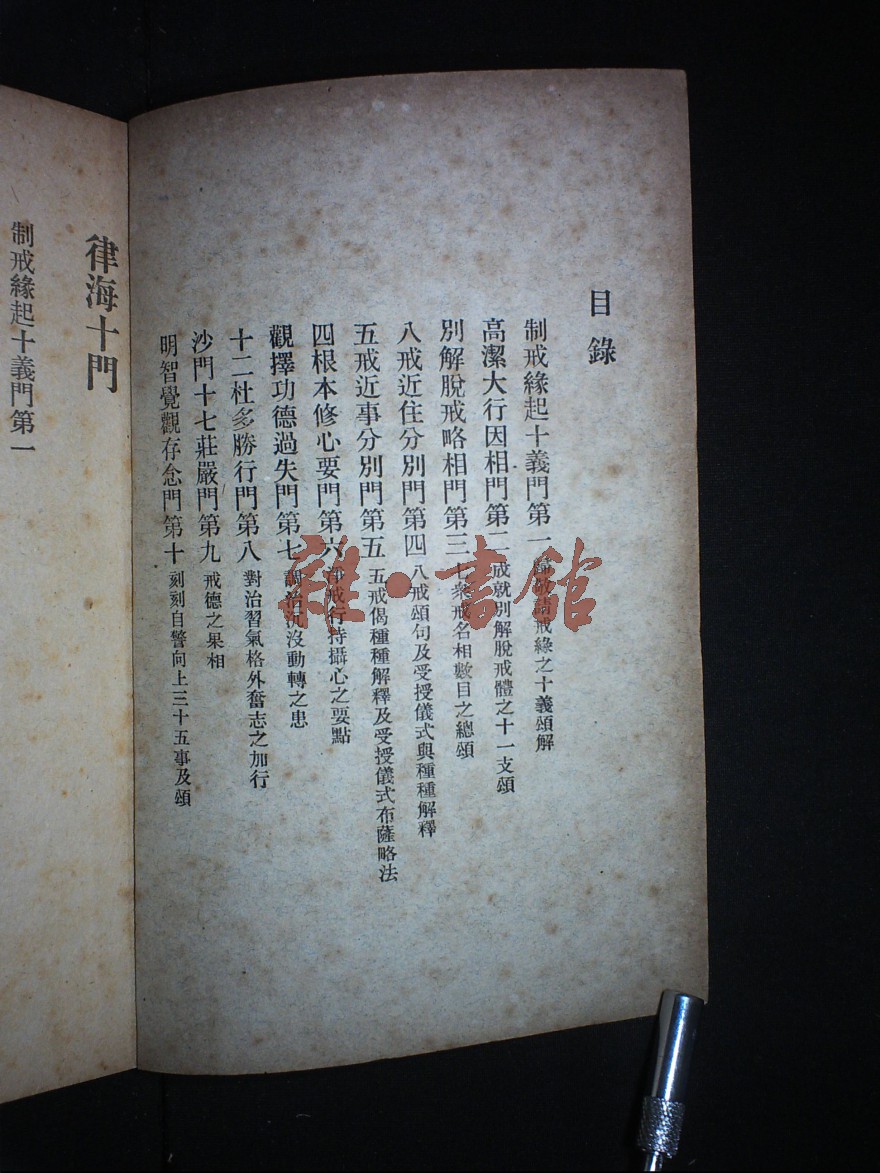 目錄
制戒緣起十義門第一 戒緣之十義頌解
高潔大行因相門第二 戒就別解脫戒體之十一支頌
別解脫戒略相門第三 七衆戒名相數目之總頌
八戒近住分別門第四 八戒頌句及受授儀式與種種解釋
五戒近事分別門第五 五戒偈種種解釋及受授儀式布薩略法
四根本修心要門第六 淨戒行持攝心之要點
觀擇功德過失門第七 調治沉沒動轉之患
十二杜多勝行門第八 對治習氣格外奮志之加行
沙門十七莊嚴門第九 戒德之果相
明智覺觀存念門第十 刻刻自警向上三十五事及頌
律海十門
制戒緣起十義門第一
雜·書館